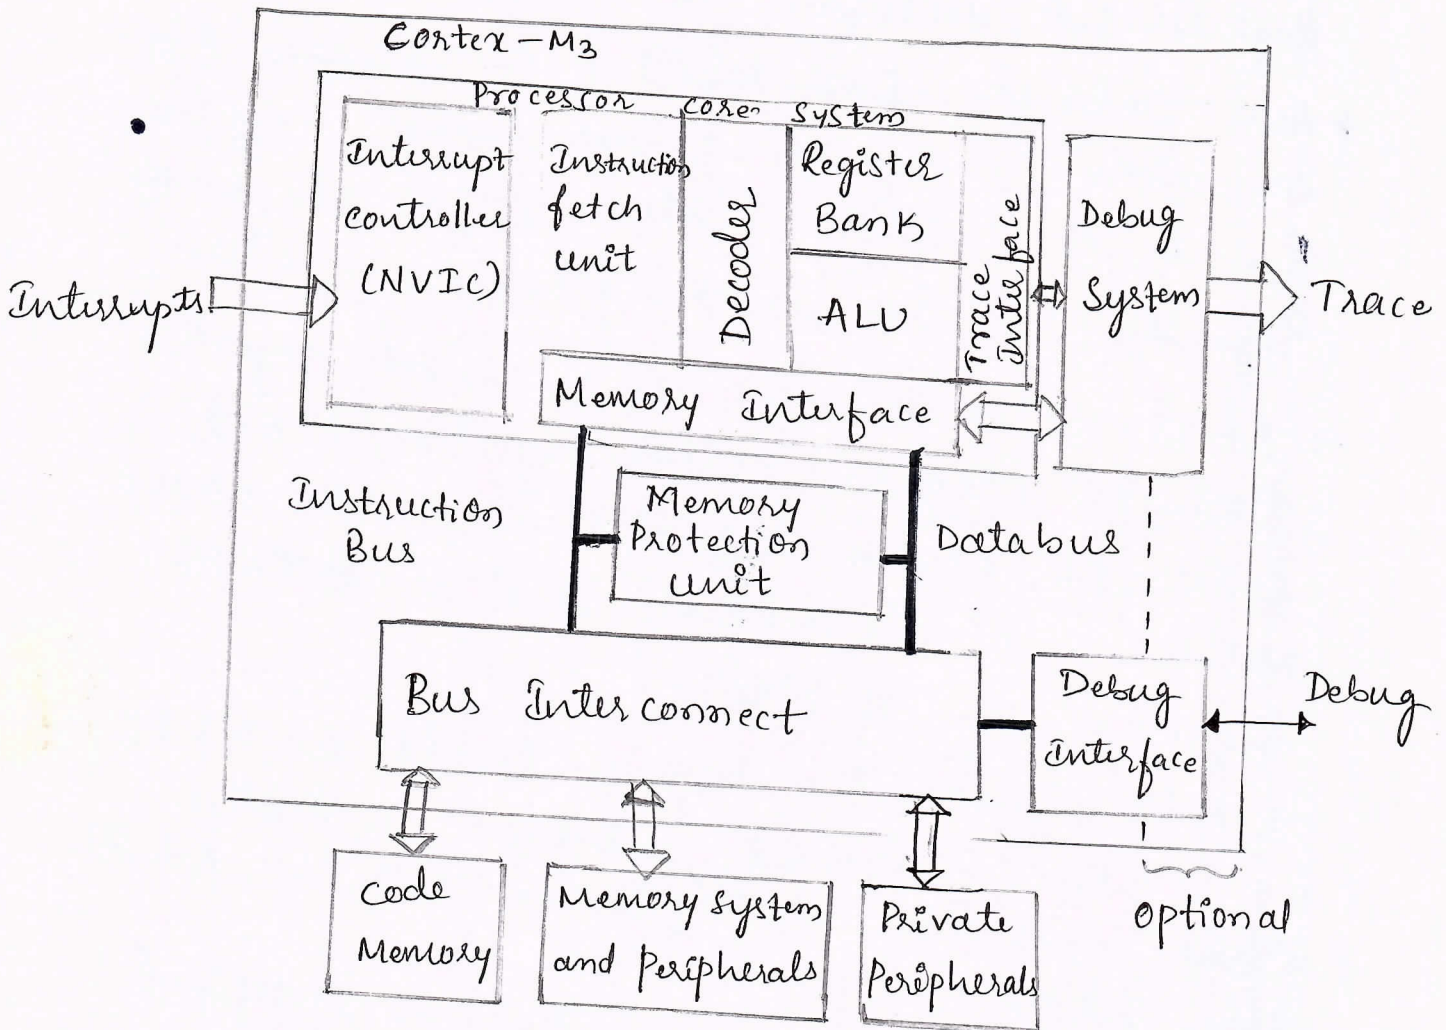 Cortex-M3
Processor core system
Interrupt
controller
(NVIC)
Instruction
fetch
unit
Decoder
Register
Bank
ALU
Trace
Interface
Debug
System
Interrupts
Trace
Memory Interface
Instruction
Bus
Memory
Protection
unit
Databus
Bus Interconnect
Debug
Interface
Debug
Code
Memory
Memory system
and Peripherals
Private
Peripherals
optional